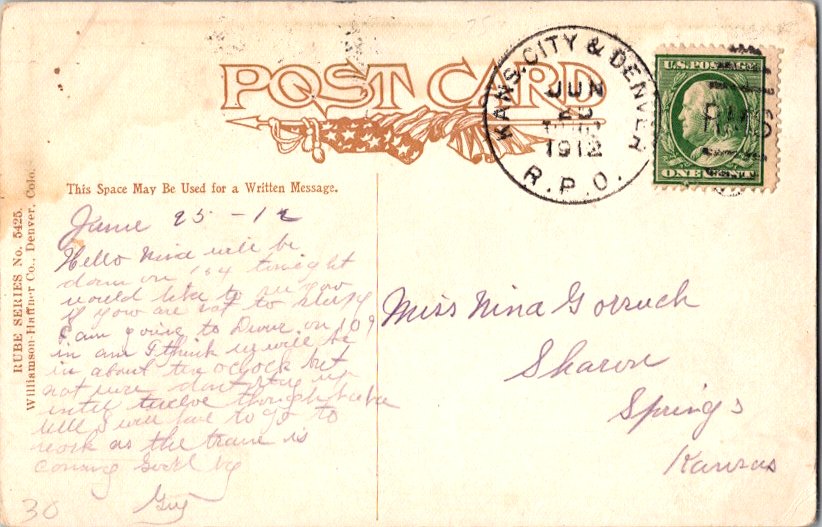 POST CARD
KANS. CITY & DENVER
JUN
25
1912
R.P.O.
U.S. POSTAGE
ONE CENT
This Space May Be Used for a Written Message.
RUBE SERIES No. 5425.
Williamson-Haffner Co., Denver, Colo.
June 25 - 12
Hello Nina will be
down on 104 tonight
would like to see you
if you are not to sleepy
I am going to on 109
in am I think we will be
in about ten oclock but
not sure dont stay up
until twelve though
well I will have to go to
work as the train is
coming Good by
Guy
Miss Nina Gorsuch
Sharon
Springs
Kansas
30